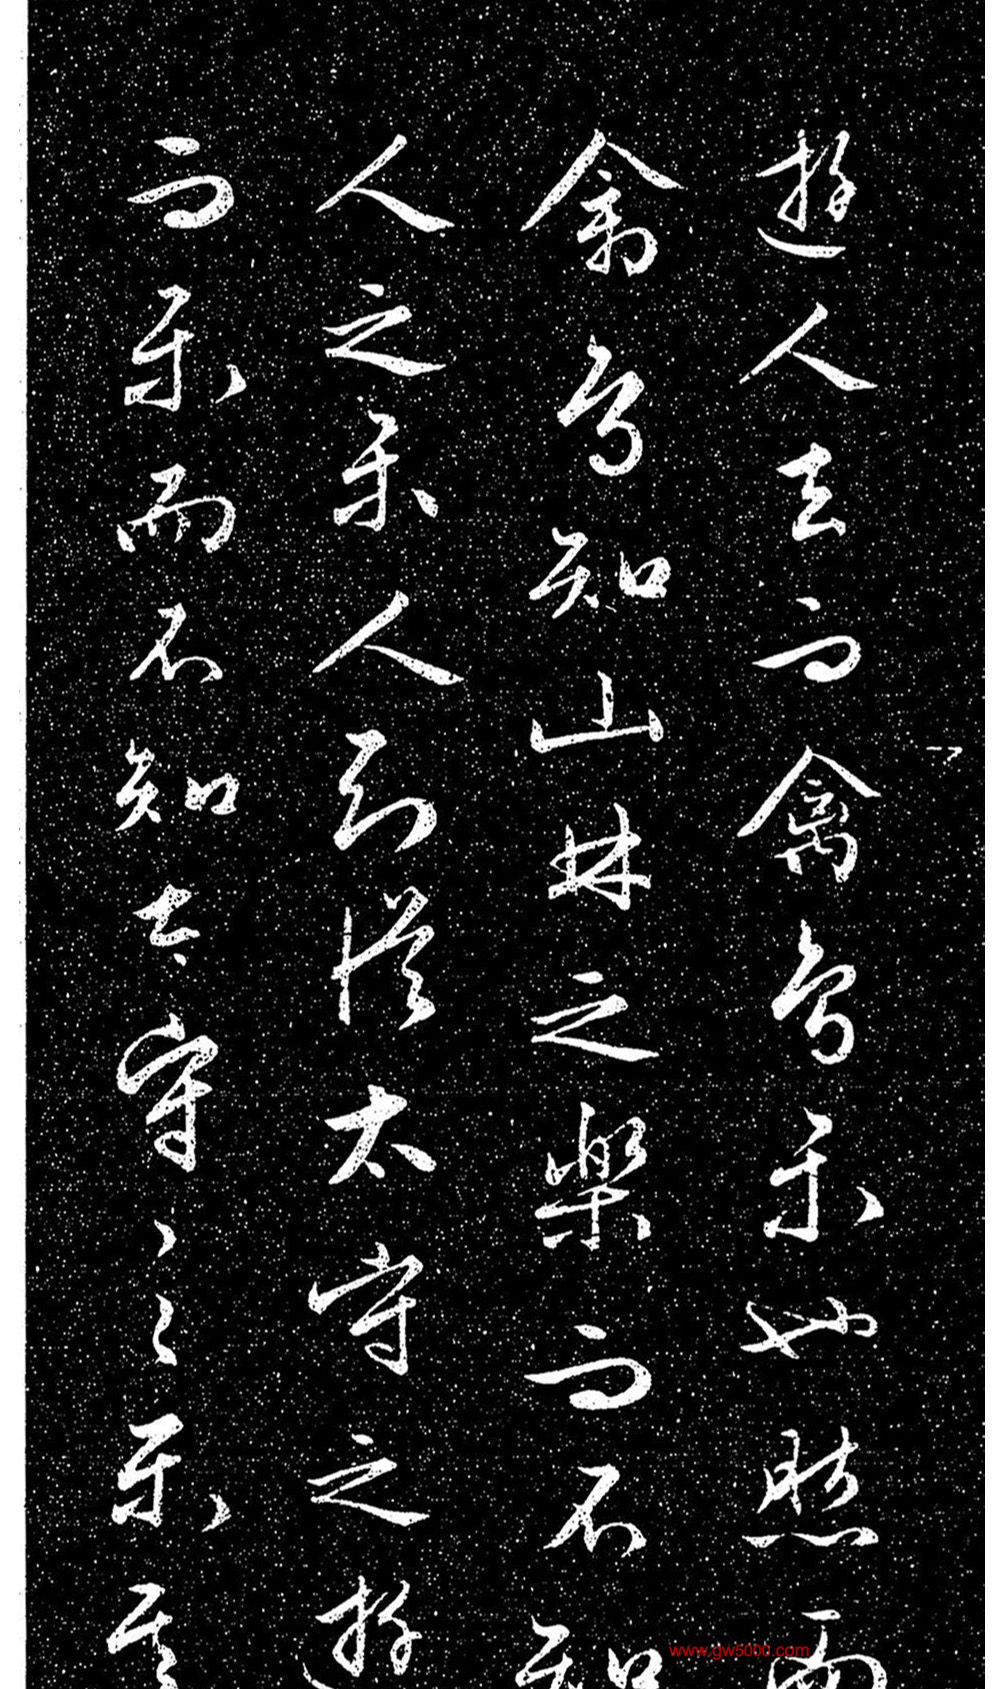 遊人去而禽鳥樂也然而
禽鳥知山林之樂而不知
人之樂人知從太守之遊
而樂而不知太守之樂其
www.gw5000.com